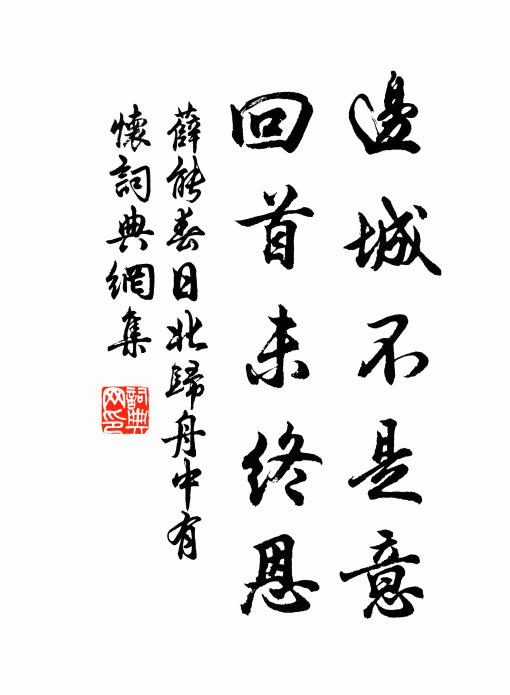 邊城不是意
回首未終恩
薛能春日北歸舟中有
懷詞典網集
詞典
网印